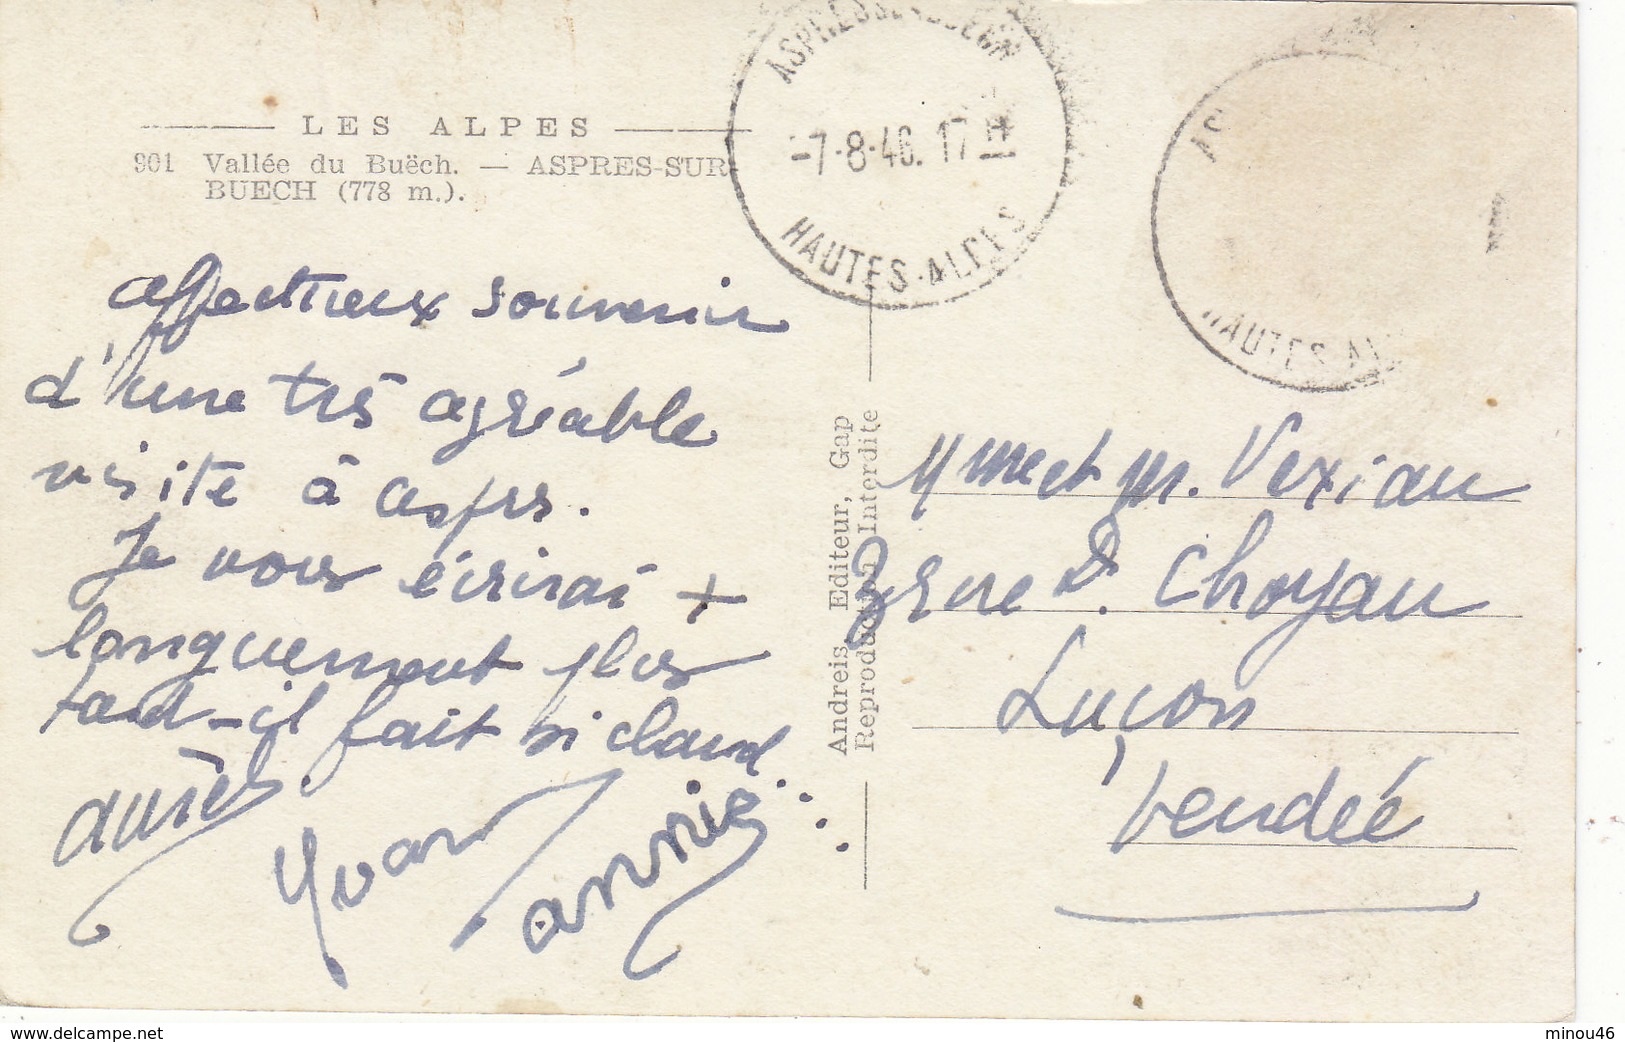 LES ALPES
901 Vallée du Buëch. — ASPRES-SUR-
BUECH (778 m.).
ASPRES
-7-8-46. 17 H
HAUTES-ALPES
AS
HAUTES-AL
affectueux souvenir
d'une très agréable
visite à Aspres.
Je vous écrirai +
longuement plus
tard - il fait si chaud
Yvan
Annie
Andreis Editeur, Gap
Reproduction Interdite
Mme et M. Vexiau
Dr. Choyau
Luçon
Vendée
www.delcampe.net
minou46